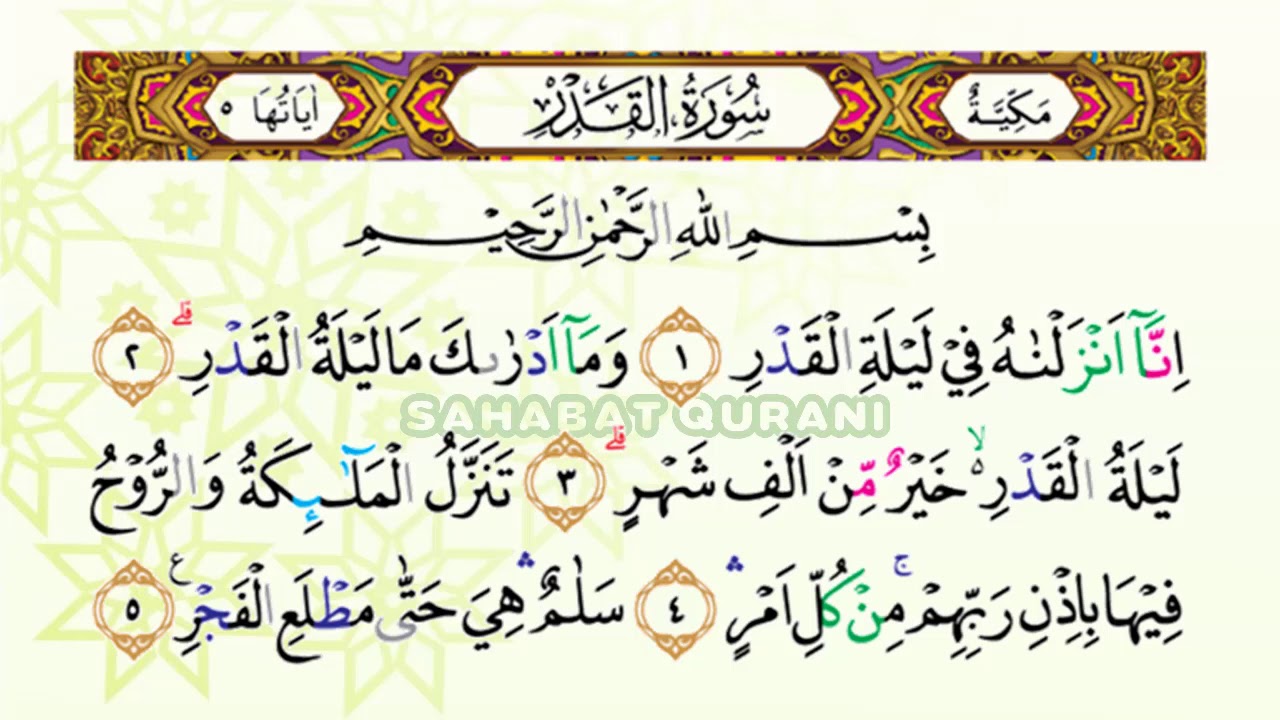 مَكِّيَّةٌ سُوْرَةُ الْقَدْرِ اٰيَاتُهَا ٥
بِسْمِ اللّٰهِ الرَّحْمٰنِ الرَّحِيْمِ
اِنَّآ اَنْزَلْنٰهُ فِيْ لَيْلَةِ الْقَدْرِ ١ وَمَآ اَدْرٰىكَ مَا لَيْلَةُ الْقَدْرِۗ ٢
SAHABAT QURANI
لَيْلَةُ الْقَدْرِ ەۙ خَيْرٌ مِّنْ اَلْفِ شَهْرٍۗ ٣ تَنَزَّلُ الْمَلٰۤىِٕكَةُ وَالرُّوْحُ
فِيْهَا بِاِذْنِ رَبِّهِمْۚ مِنْ كُلِّ اَمْرٍۛ ٤ سَلٰمٌ ۛهِيَ حَتّٰى مَطْلَعِ الْفَجْرِ ࣖ ٥